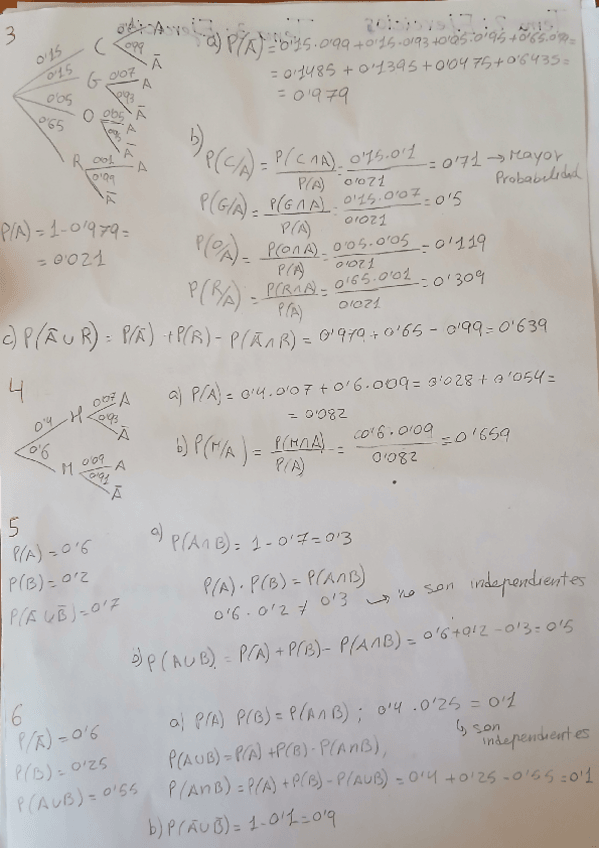 3
0'15 C 0'01 A
0'99 Ā
0'15 G 0'07 A
0'93 Ā
0'05 O 0'05 A
0'95 Ā
0'65 R 0'01 A
0'99 Ā
a) P(Ā) = 0'15·0'99 + 0'15·0'93 + 0'05·0'95 + 0'65·0'99 =
= 0'1485 + 0'1395 + 0'0475 + 0'6435 =
= 0'979
P(A) = 1 - 0'979 =
= 0'021
b) P(C/A) = P(C∩A)/P(A) = 0'15·0'1/0'021 = 0'71 → Mayor Probabilidad
P(G/A) = P(G∩A)/P(A) = 0'15·0'07/0'021 = 0'5
P(O/A) = P(O∩A)/P(A) = 0'05·0'05/0'021 = 0'119
P(R/A) = P(R∩A)/P(A) = 0'65·0'01/0'021 = 0'309
c) P(Ā∪R) = P(Ā) + P(R) - P(Ā∩R) = 0'979 + 0'65 - 0'99 = 0'639
4
0'4 H 0'07 A
0'93 Ā
0'6 M 0'09 A
0'91 Ā
a) P(A) = 0'4·0'07 + 0'6·0'09 = 0'028 + 0'054 =
= 0'082
b) P(M/A) = P(M∩A)/P(A) = 0'6·0'09/0'082 = 0'659
5
P(A) = 0'6
P(B) = 0'2
P(Ā∪B̄) = 0'7
a) P(A∩B) = 1 - 0'7 = 0'3
P(A)·P(B) = P(A∩B)
0'6·0'2 ≠ 0'3 → no son independientes
b) P(A∪B) = P(A) + P(B) - P(A∩B) = 0'6 + 0'2 - 0'3 = 0'5
6
P(Ā) = 0'6
P(B) = 0'25
P(A∪B) = 0'55
a) P(A) P(B) = P(A∩B) ; 0'4·0'25 = 0'1
↳ son independientes
P(A∪B) = P(A) + P(B) - P(A∩B),
P(A∩B) = P(A) + P(B) - P(A∪B) = 0'4 + 0'25 - 0'55 = 0'1
b) P(Ā∪B̄) = 1 - 0'1 = 0'9